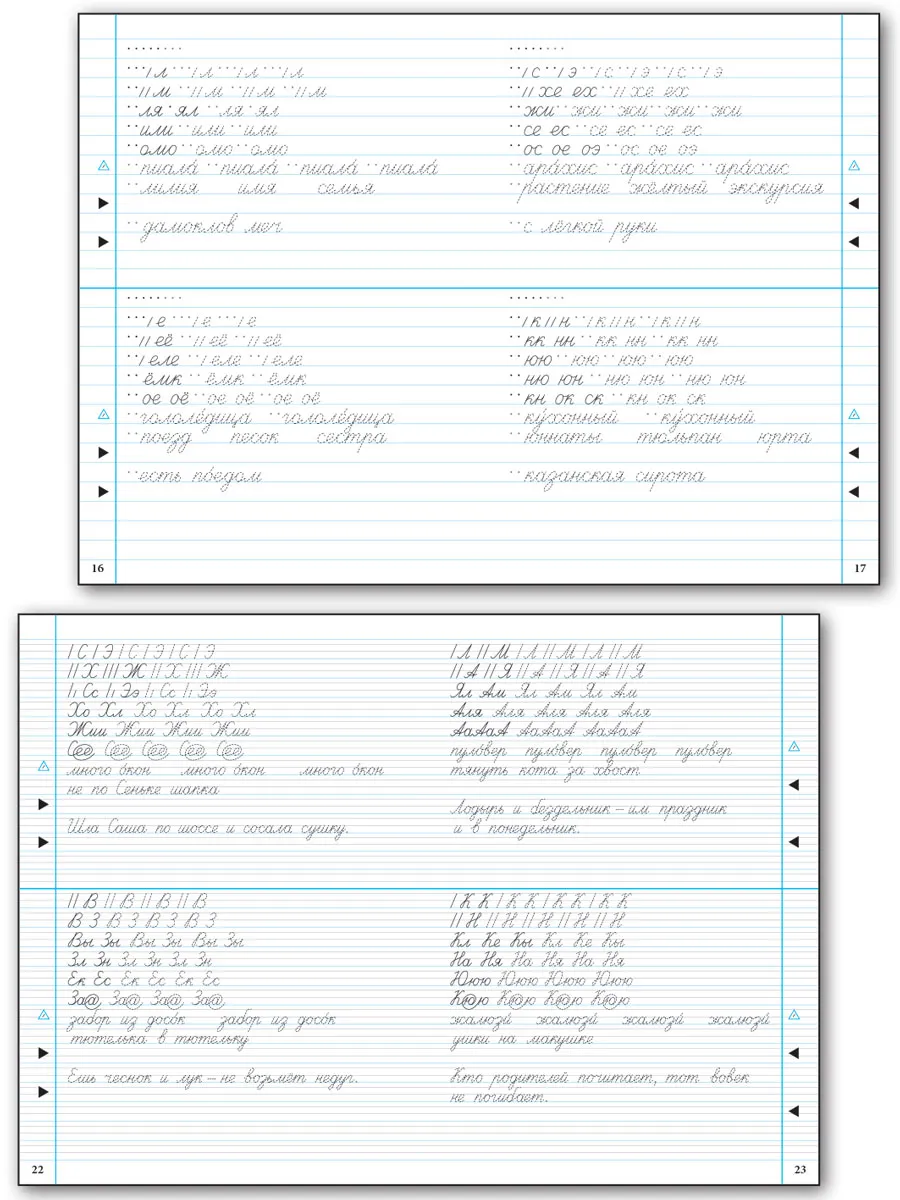 l л l л l л l л
ll м ll м ll м ll м
ля ял ля ял
или или или
омо омо омо
пиала́ пиала́ пиала́ пиала́
лилия имя семья
дамоклов меч
l с l э l с l э l с l э
ll хе ех ll хе ех
жи жи жи жи жи
се ес се ес се ес
ос ое оэ ос ое оэ
ара́хис ара́хис ара́хис
растение жёлтый экскурсия
с лёгкой руки
l е l е l е
ll её ll её ll её
l еле l еле l еле
ёмк ёмк ёмк
ое оё ое оё ое оё
гололе́дица гололе́дица
поезд песок сестра
есть по́едом
l к ll н l к ll н l к ll н
кк нн кк нн кк нн
юю юю юю юю
ню юн ню юн ню юн
кн ок ск кн ок ск
ку́хонный ку́хонный
юннаты тюльпан юрта
казанская сирота
16
17
l С l Э l С l Э l С l Э
ll Х lll Ж ll Х lll Ж
Сс Ээ Сс Ээ
Хо Хл Хо Хл Хо Хл
Жии Жии Жии Жии
много о́кон много о́кон много о́кон
не по Сеньке шапка
Шла Саша по шоссе и сосала сушку.
l Л ll М l Л ll М l Л ll М
ll А ll Я ll А ll Я ll А ll Я
Ял Ам Ял Ам Ял Ам
Аля Аля Аля Аля Аля
АаАаА АаАаА АаАаА
пуло́вер пуло́вер пуло́вер пуло́вер
тянуть кота за хвост
Лодырь и бездельник – им праздник
и в понедельник.
ll В ll В ll В ll В
В З В З В З В З
Вы Зы Вы Зы Вы Зы
Зл Зн Зл Зн Зл Зн
Ек Ес Ек Ес Ек Ес
За@ За@ За@ За@
забор из досо́к забор из досо́к
тютелька в тютельку
Ешь чеснок и лук – не возьмёт недуг.
l К К l К К l К К l К К
ll Н ll Н ll Н ll Н ll Н
Кл Ке Кы Кл Ке Кы
На Ня На Ня На Ня
Ююю Ююю Ююю Ююю
К@ю К@ю К@ю К@ю
жалюзи́ жалюзи́ жалюзи́ жалюзи́
ушки на макушке
Кто родителей почитает, тот вовек
не погибает.
22
23